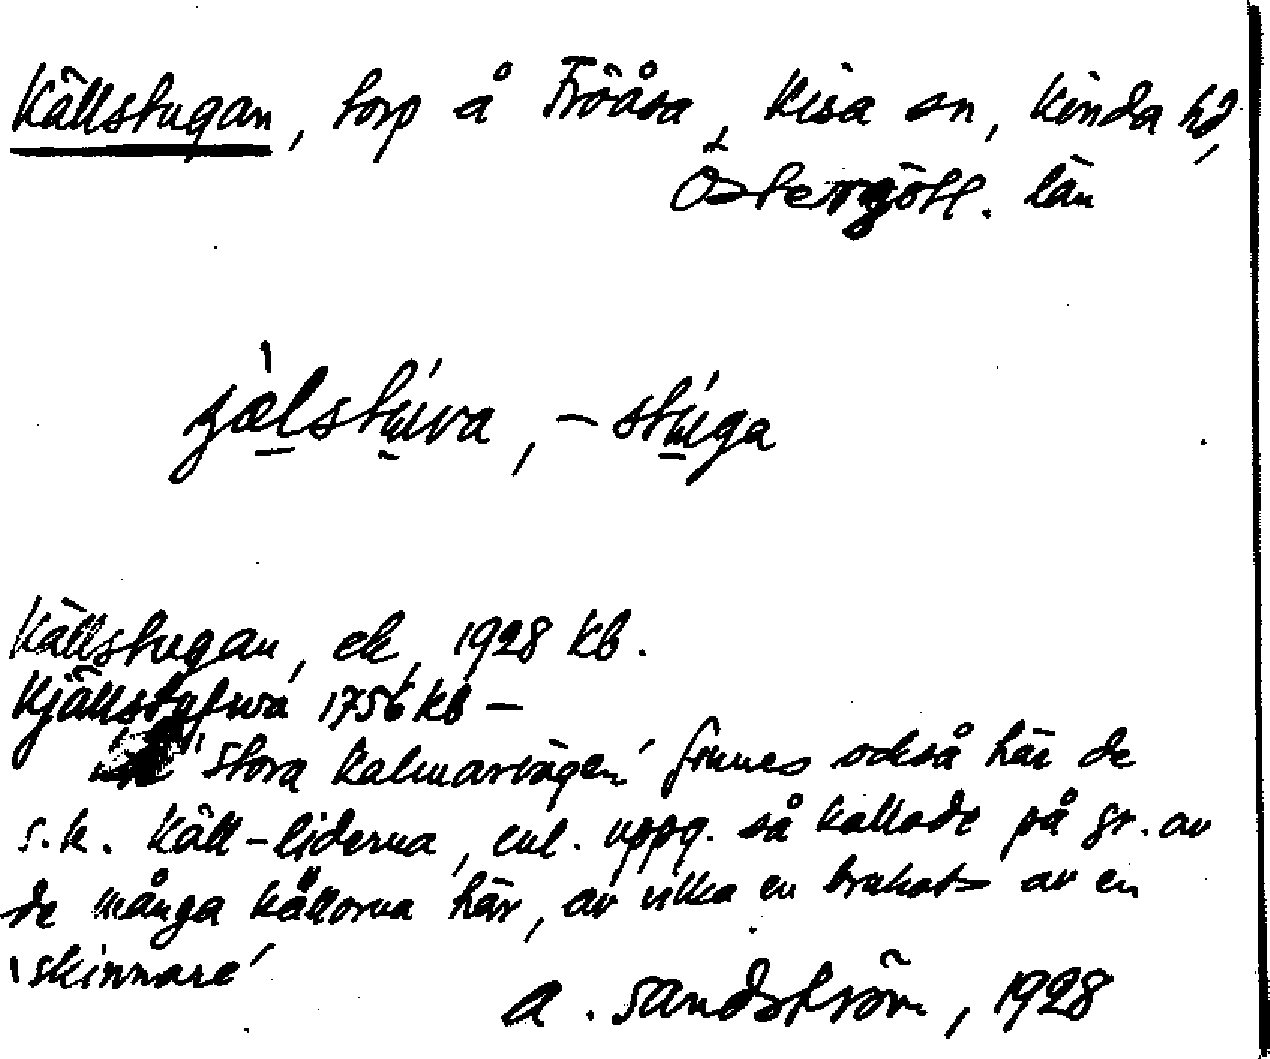 Källstugan, torp å Fröåsa, Kisa sn, Kinda hd,
Östergötl. län
jälstúva, – stúga
Källstugan, ek, 1928 kb.
Kjällstufwa 1756 kb –
"Stora Kalmarvägen" finnes också här de
s.k. Käll-liderna, enl. uppg. så kallade på gr. av
de många källorna här, av vilka en brukats av en
'skinnare'
A. Sandström, 1928